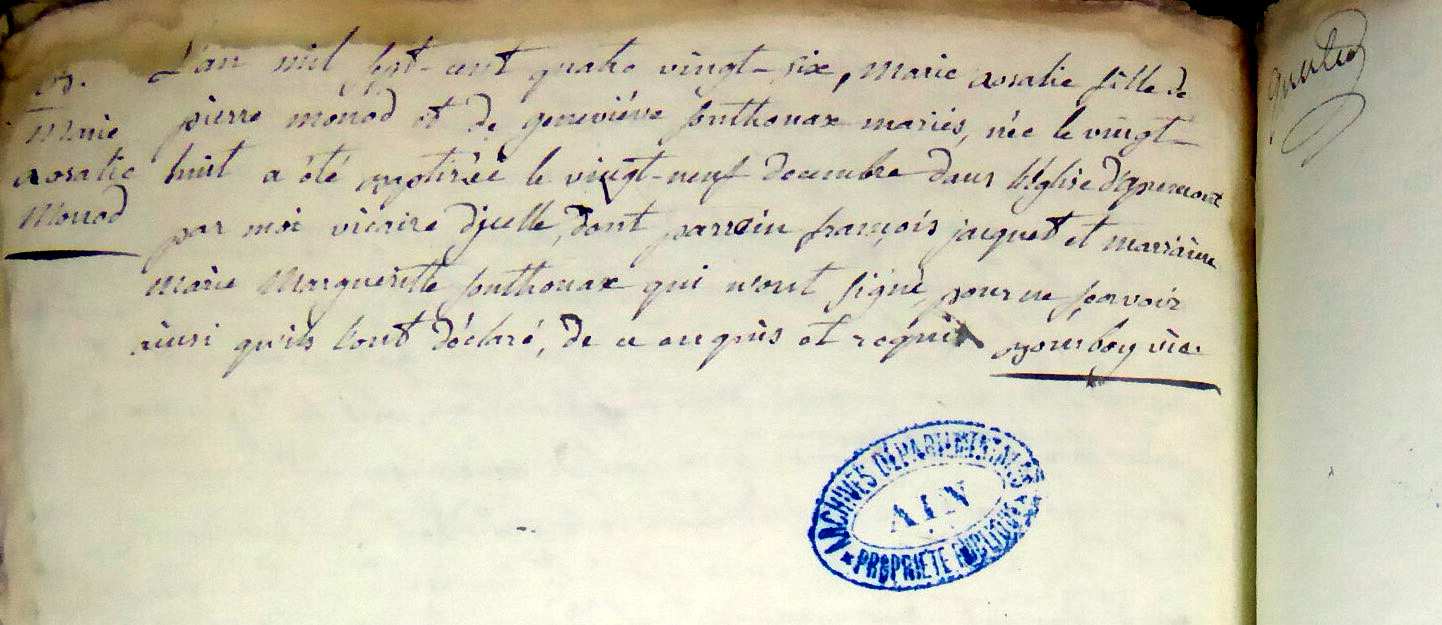 B.
Marie
rosalie
Monod
L'an mil sept-cent quatre vingt-six, marie rosalie fille de
pierre monod et de geneviéve sonthonax mariés, née le vingt-
huit a été baptisée le vingt-neuf decembre dans l'église d'apremont
par moi vicaire d'jcelle, dont parrein françois jacquet et marraine
marie Marguerite sonthonax qui n'ont signé, pour ne sçavoir
ainsi qu'ils l'ont déclaré, de ce enquis et requis vic.
ARCHIVES DÉPARTEMENTALES
AIN
* PROPRIÉTÉ PUBLIQUE *